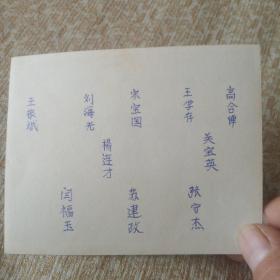 高合伸
吴宝英
张守杰
王学存
宋宝国
苏建政
杨连才
刘海光
闫福玉
王振斌